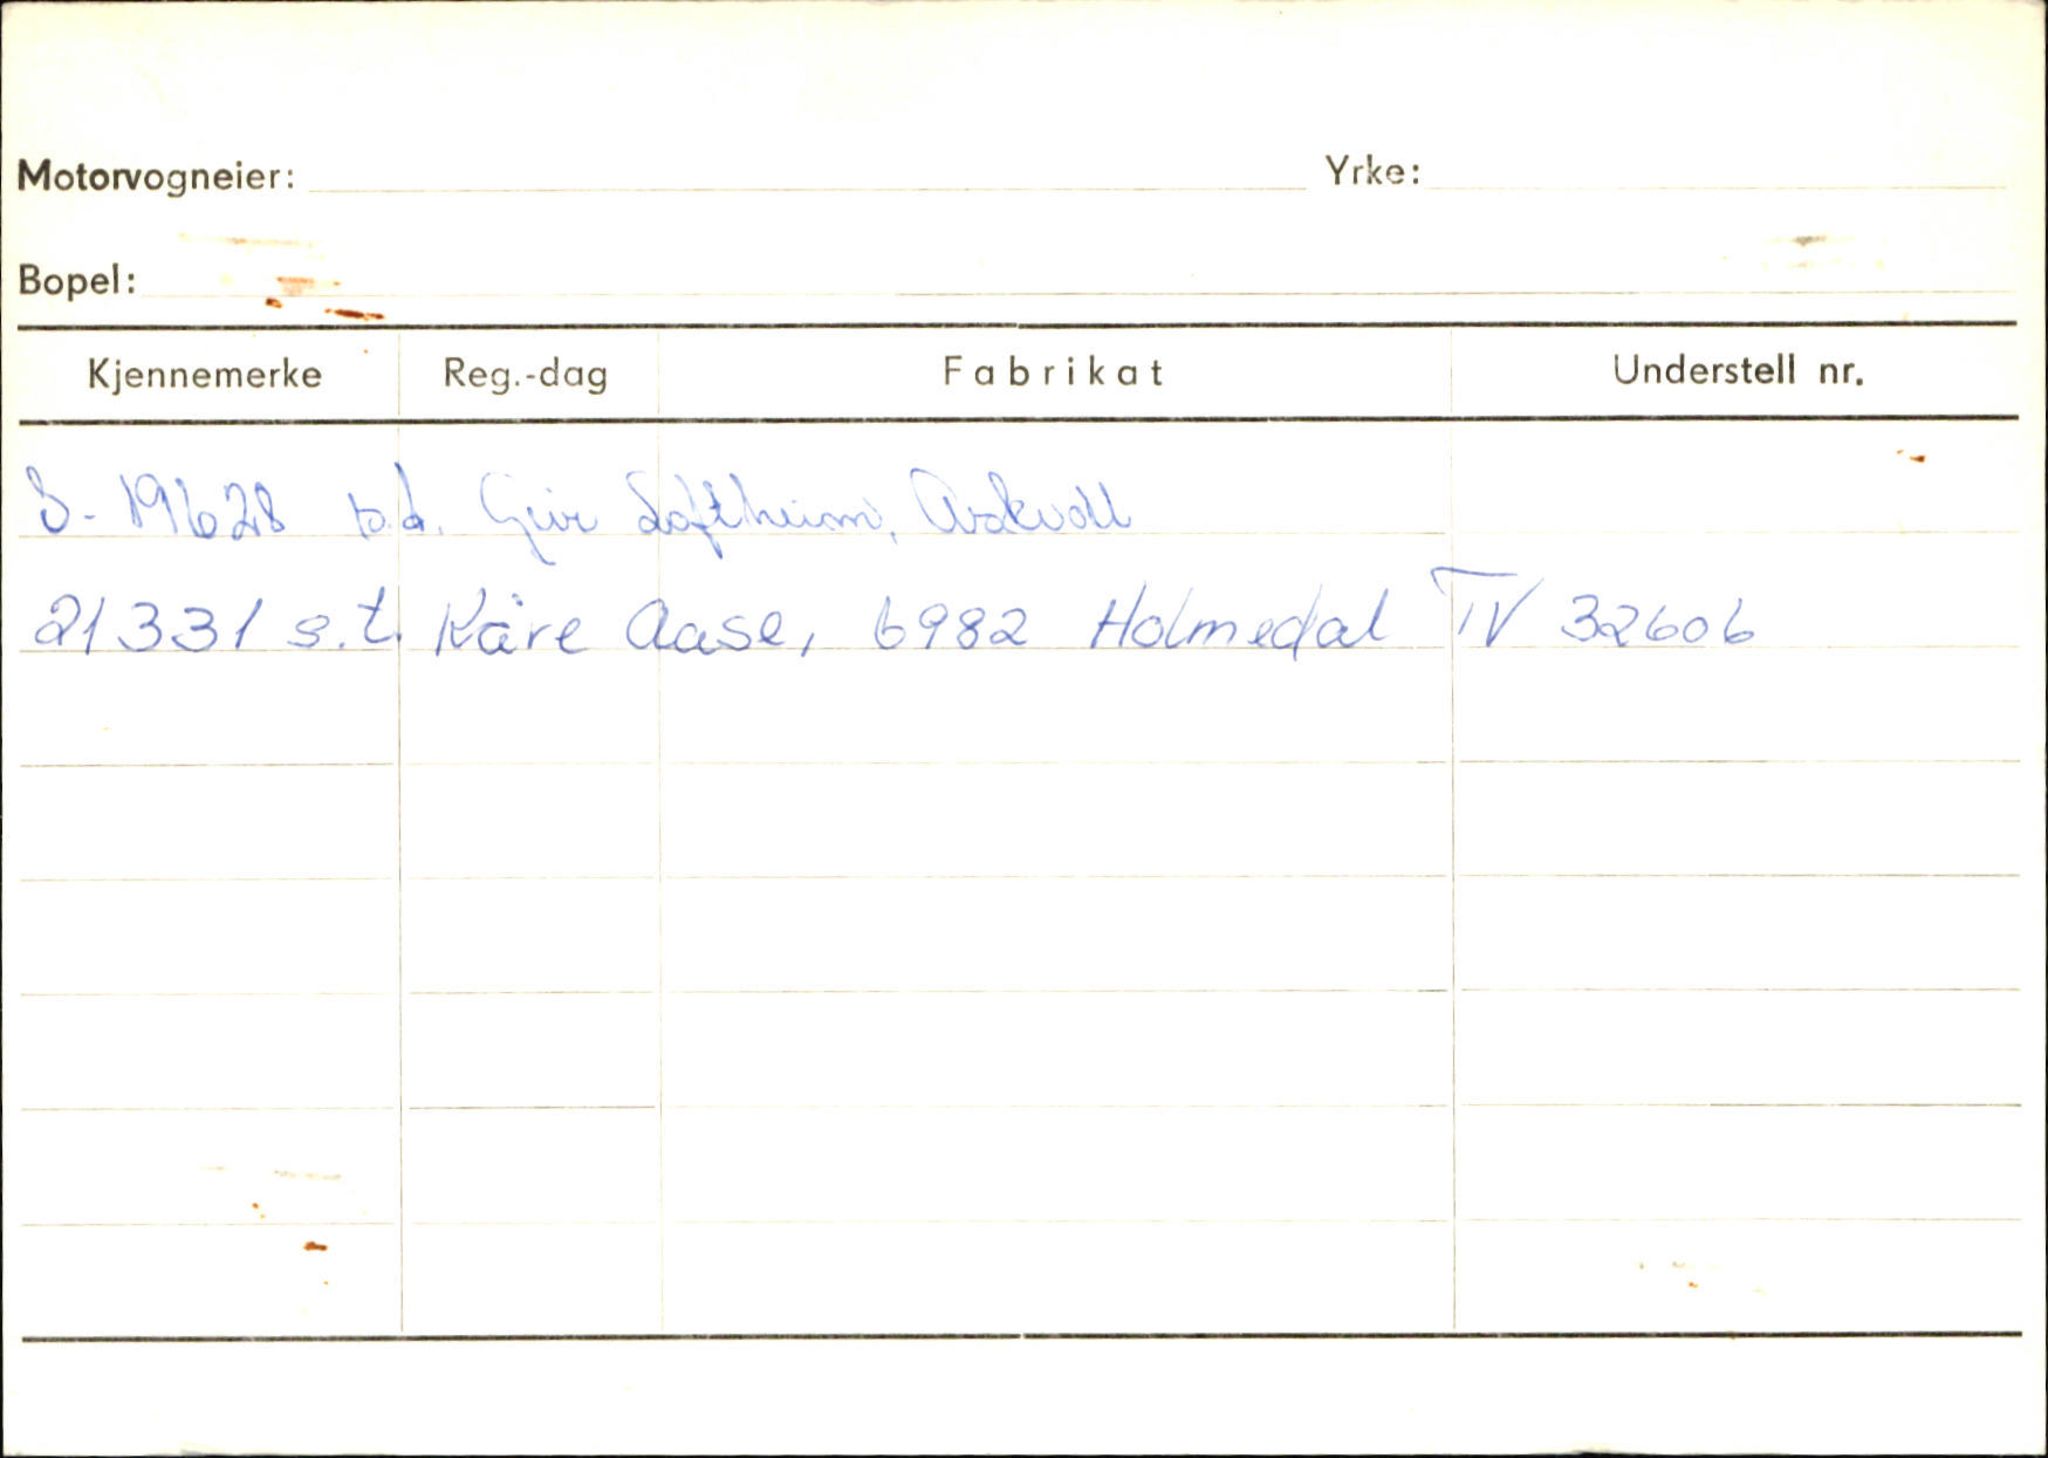 Motorvogneier: Yrke:
Bopel:
Kjennemerke Reg.-dag Fabrikat Understell nr.
S-19628 s.d. Geir Loftheim, Askvoll
21331 s.t. Kåre Aase, 6982 Holmedal TV 32606